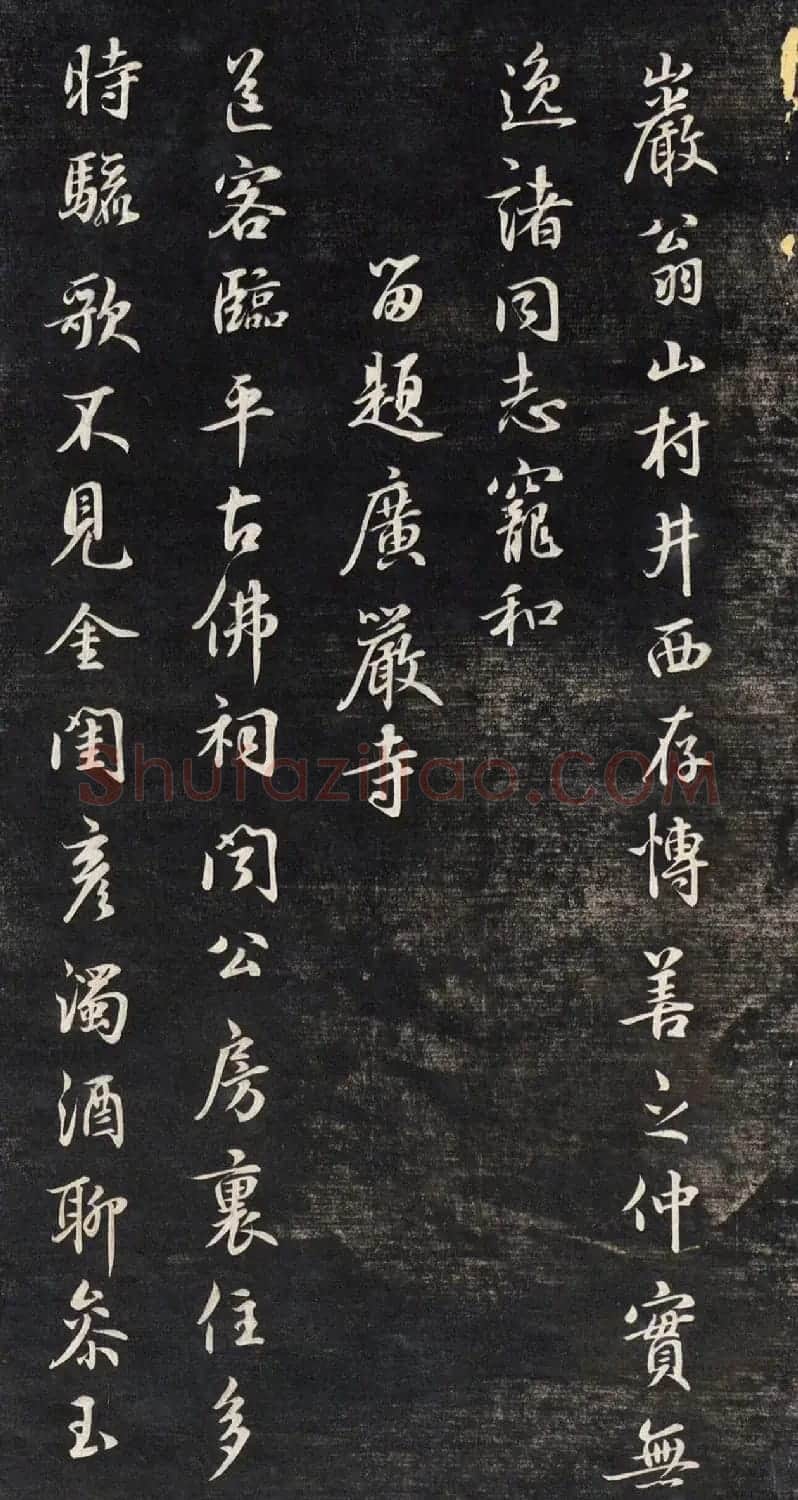 巖翁山村井西存博善之仲實無
逸諸同志寵和
留題廣嚴寺
送客臨平古佛祠閉公房裏住多
時驪歌不見金閨彥濁酒聊參玉
Shufaziliao.COM